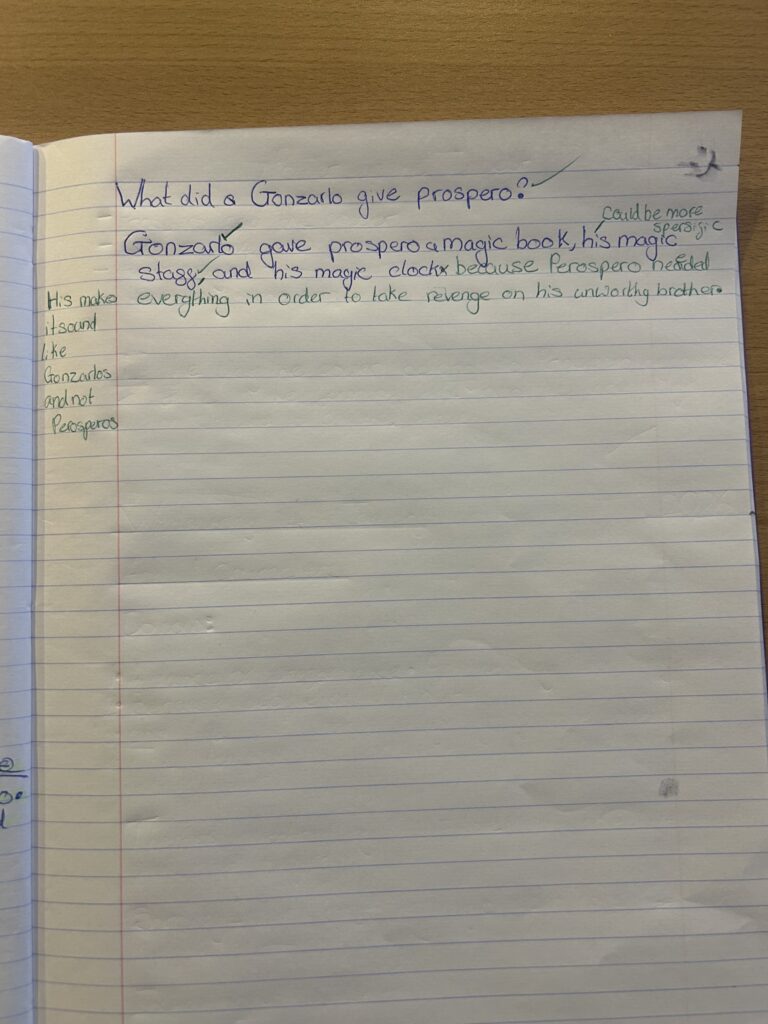 What did a Gonzarlo give prospero?
could be more
spersific
Gonzarlo gave prospero a magic book, his magic
staff, and his magic clock because Perospero needed
everything in order to take revenge on his unworthy brother.
His make
it sound
like
Gonzarlos
and not
Perosperos